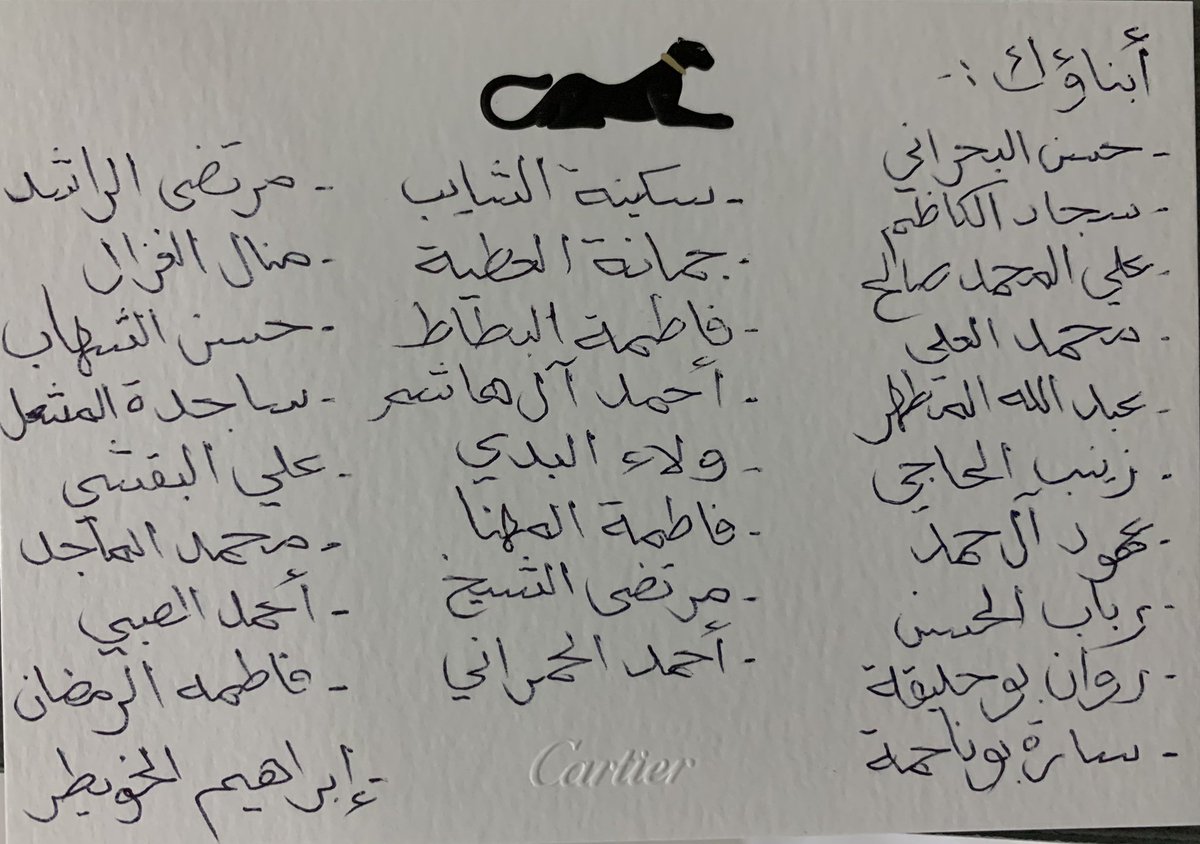 أبناؤك :-
- حسن البحراني
- سجاد الكاظم
- علي المحمد صالح
- محمد العلي
- عبد الله المتطهر
- زينب الحاجي
- عهود آل حمد
- رباب الحسن
- روان بوحليقة
- سارة بوناحمة
- سكينة الشايب
- جمانة العطية
- فاطمة البطاط
- أحمد آل هاشم
- ولاء البدي
- فاطمة المهنا
- مرتضى الشيخ
- أحمد الحمراني
- مرتضى الراشد
- منال الغزال
- حسن الشهاب
- ساجدة المشعل
- علي البقشي
- محمد الماجد
- أحمد الصبي
- فاطمه الرمضان
- إبراهيم الخويطر
Cartier